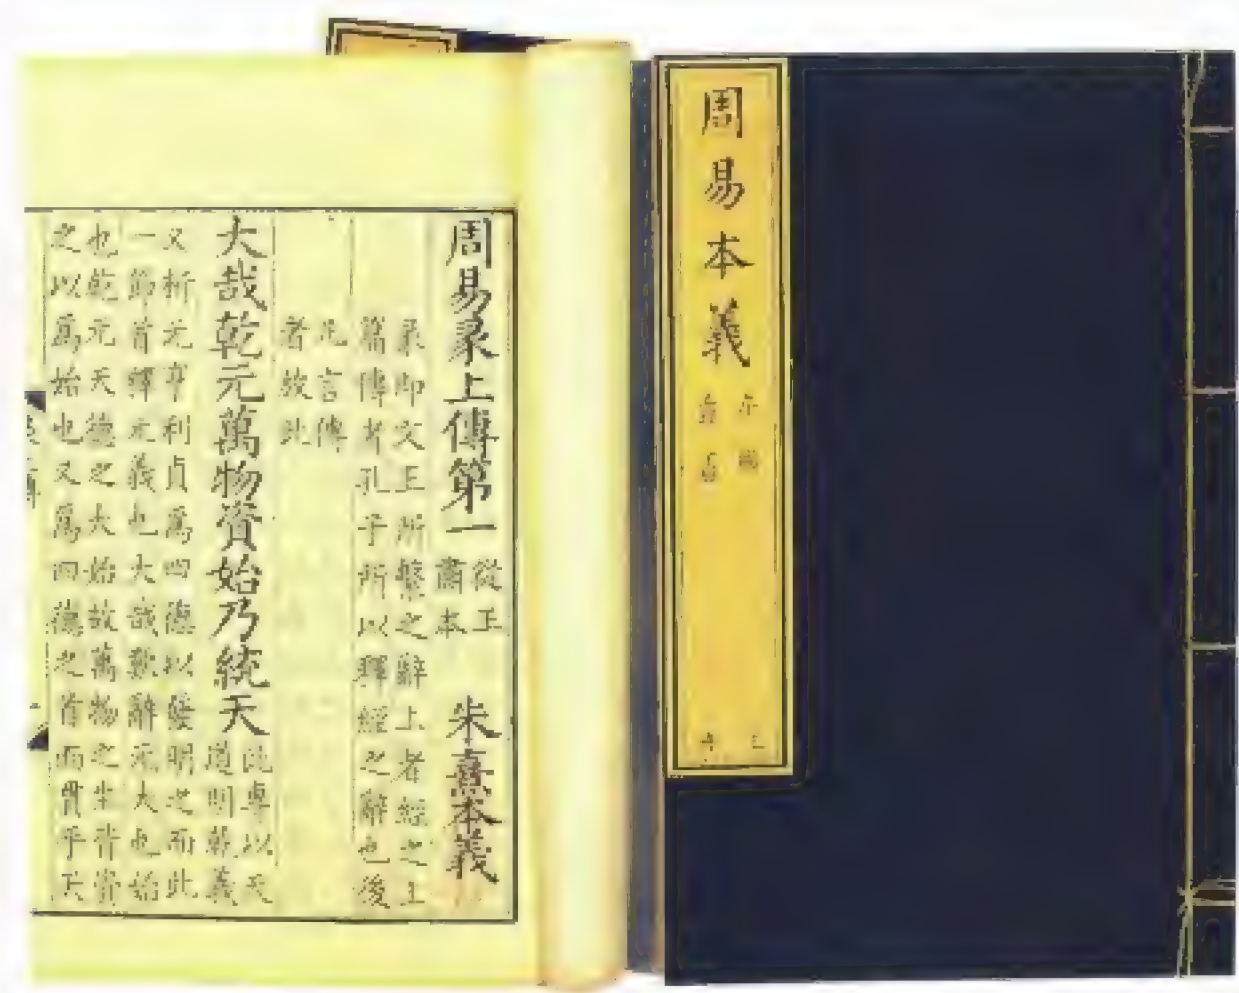 周易本義
周易彖上傳第一
從王
肅本
朱熹本義
彖即文王所繫之辭上者經之上
篇傳者孔子所以釋經之辭也後
凡言傳
者放此
大哉乾元萬物資始乃統天
此專以天
道明乾義
又析元亨利貞爲四德以發明之而此
一節首釋元義也大哉歎辭元大也始
也乾元天德之大始故萬物之生皆資
之以爲始也又爲四德之首而貫乎天